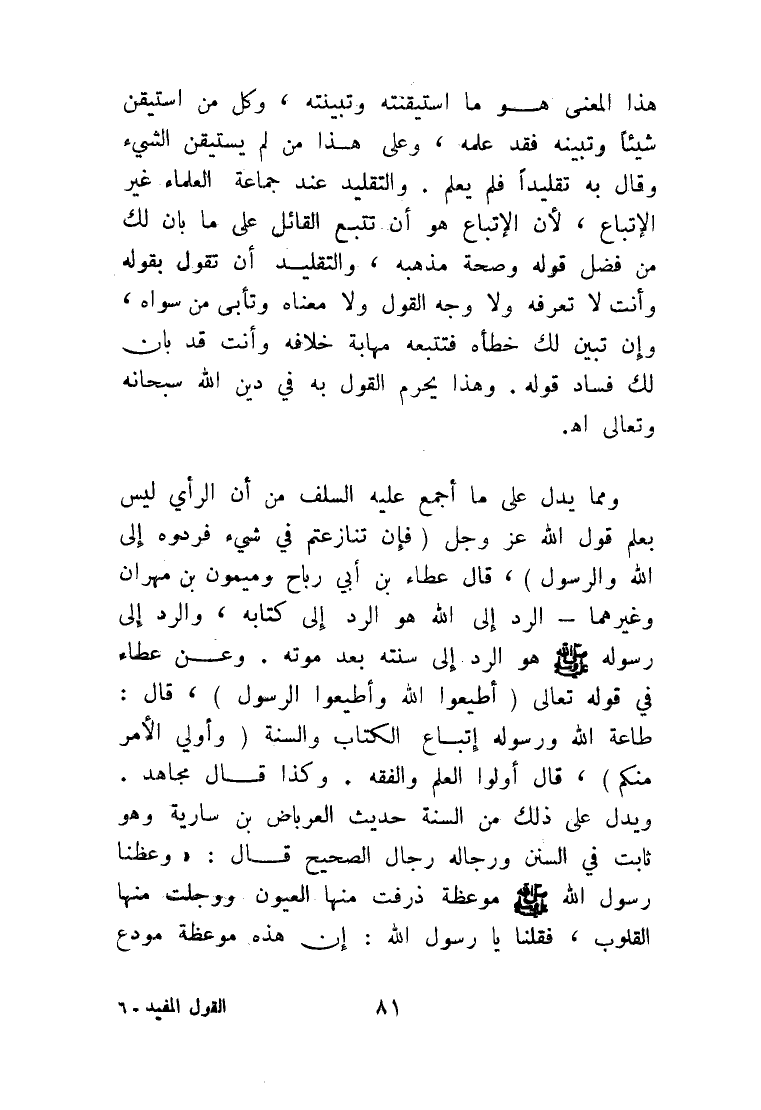 هذا المعنى هـــو ما استيقنته وتبينته ، وكل من استيقن
شيئاً وتبينه فقد علمه ، وعلى هـــذا من لم يستيقن الشيء
وقال به تقليداً فلم يعلم . والتقليد عند جماعة العلماء غير
الإتباع ، لأن الإتباع هو أن تتبع القائل على ما بان لك
من فضل قوله وصحة مذهبه ، والتقليـــد أن تقول بقوله
وأنت لا تعرفه ولا وجه القول ولا معناه وتأبى من سواه ،
وإن تبين لك خطأه فتتبعه مهابة خلافه وأنت قد بان
لك فساد قوله . وهذا يحرم القول به في دين الله سبحانه
وتعالى اهـ.
ومما يدل على ما أجمع عليه السلف من أن الرأي ليس
بعلم قول الله عز وجل ( فإن تنازعتم في شيء فردوه إلى
الله والرسول ) ، قال عطاء بن أبي رباح وميمون بن مهران
وغيرهما – الرد إلى الله هو الرد إلى كتابه ، والرد إلى
رسوله ﷺ هو الرد إلى سنته بعد موته . وعـــن عطاء
في قوله تعالى ( أطيعوا الله وأطيعوا الرسول ) ، قال :
طاعة الله ورسوله إتبـــاع الكتاب والسنة ( وأولي الأمر
منكم ) ، قال أولوا العلم والفقه . وكذا قـــال مجاهد .
ويدل على ذلك من السنة حديث العرباض بن سارية وهو
ثابت في السنن ورجاله رجال الصحيح قـــال : « وعظنا
رسول الله ﷺ موعظة ذرفت منها العيون ووجلت منها
القلوب ، فقلنا يا رسول الله : إن هذه موعظة مودع
٨١
القول المفيد - ٦